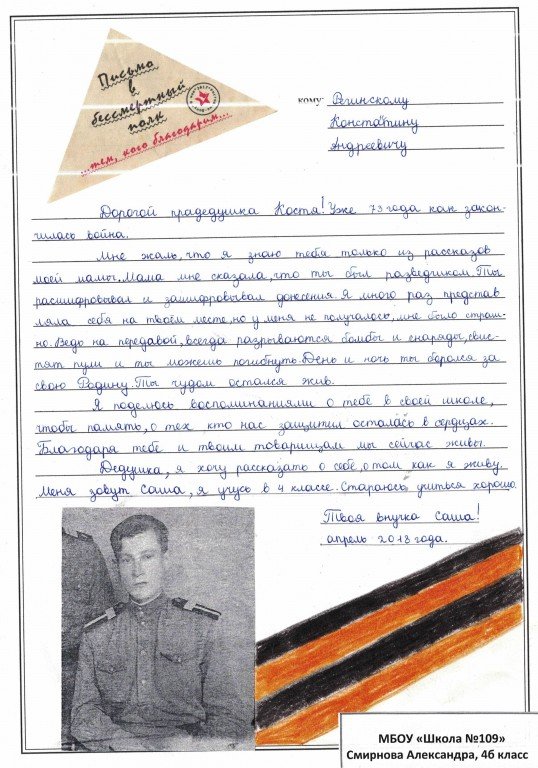 Письмо
в
бессмертный
полк
...тем, кого благодарим...
кому Регинскому
Констатину
Андреевичу
Дорогой прадедушка Костя! Уже 73 года как закон-
чилась война.
Мне жаль, что я знаю тебя только из рассказов
моей мамы. Мама мне сказала, что ты был разведчиком. Ты
расшифровывал и зашифровывал донесения. Я много раз представ
ляла себя на твоём месте, но у меня не получалось, мне было страш-
но. Ведь на передавой, всегда разрываются бомбы и снаряды, свис-
тят пули и ты можешь погибнуть. День и ночь ты боролся за
свою Родину. Ты чудом остался жив.
Я поделюсь воспоминаниями о тебе в своей школе,
чтобы память, о тех кто нас защитил осталась в сердцах.
Благодаря тебе и твоим товарищам мы сейчас живы.
Дедушка, я хочу рассказать о себе, о том как я живу.
Меня зовут Саша, я учусь в 4 классе. Стараюсь учиться хорошо.
Твоя внучка Саша!
апрель 2018 года.
МБОУ «Школа №109»
Смирнова Александра, 4б класс